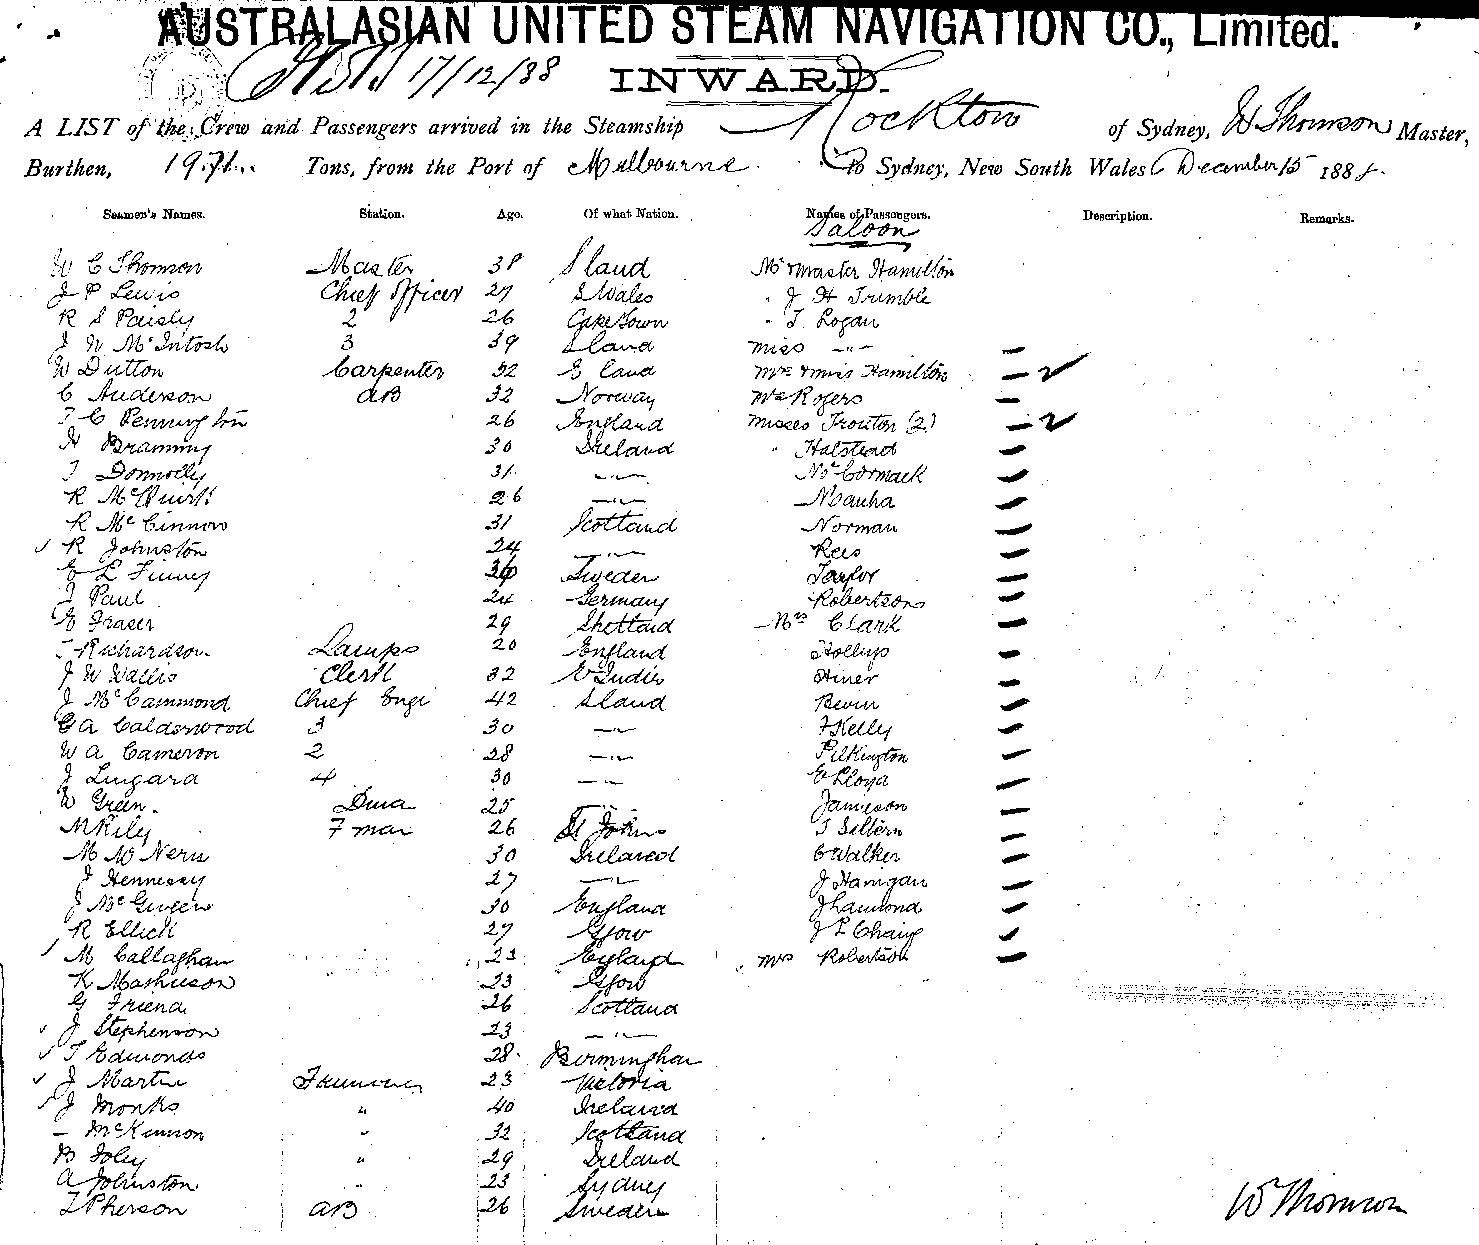 AUSTRALASIAN UNITED STEAM NAVIGATION CO., Limited.
17/12/88 INWARD.
A LIST of the Crew and Passengers arrived in the Steamship Rockton of Sydney, W Thomson Master,
Burthen, 1971 Tons, from the Port of Melbourne To Sydney, New South Wales December 15 1888.
Seamen's Names. Station. Age. Of what Nation. Names of Passengers. Description. Remarks.
Saloon
W C Thomson Master 38 S land Mr & master Hamilton
J P Lewis Chief Officer 27 S Wales " J H Trumble
R S Paisly 2 26 Cape Town " T. Logan
J W McIntosh 3 39 S land Miss -"-
W Dutton Carpenter 32 E land Mrs & miss Hamilton
C Anderson AB 32 Norway Mrs Rogers
T C Pennington 26 England Misses Trouton (2)
H Bramming 30 Ireland " Halstead
T Donnolly 31 -"- McCormack
R 26 -"-
R McCinnon 31 Scotland Norman
R Johnston 24 -"- Rees
E L Finney Sweden Taylor
J Paul 24 Germany Robertson
E Fraser 29 Shetland Mrs Clark
Richardson Lamps 20 England Hollys
J W Wallis Clerk 32 E Indies Hiner
J McCammond Chief Engr 42 S land Bevin
G A Calderwood 3 30 -"- F Kelly
W A Cameron 2 28 -"- Pilkington
J Lingard 4 30 -"- E Lloyd
W Green 25 Jamieson
M Rily F man 26 St Johns
M 30 Ireland C Walker
J Hennessy 27 -"- J Hanigan
J McGiveen 30 England J Lamond
R Ellick 27 Gsow
M Callaghan 23 England Mrs Robertson
K Mathieson 23 Gsow
G Friend 26 Scotland
J Stephenson 23 -"-
T Edmonds 28 Birmingham
J Martin Trimmer 23 Victoria
J Monks " 40 Ireland
- McKinnon " 32 Scotland
B Foley " 29 Ireland
A Johnston " 23 Sydney
T Pherson AB 26 Sweden
W Thomson